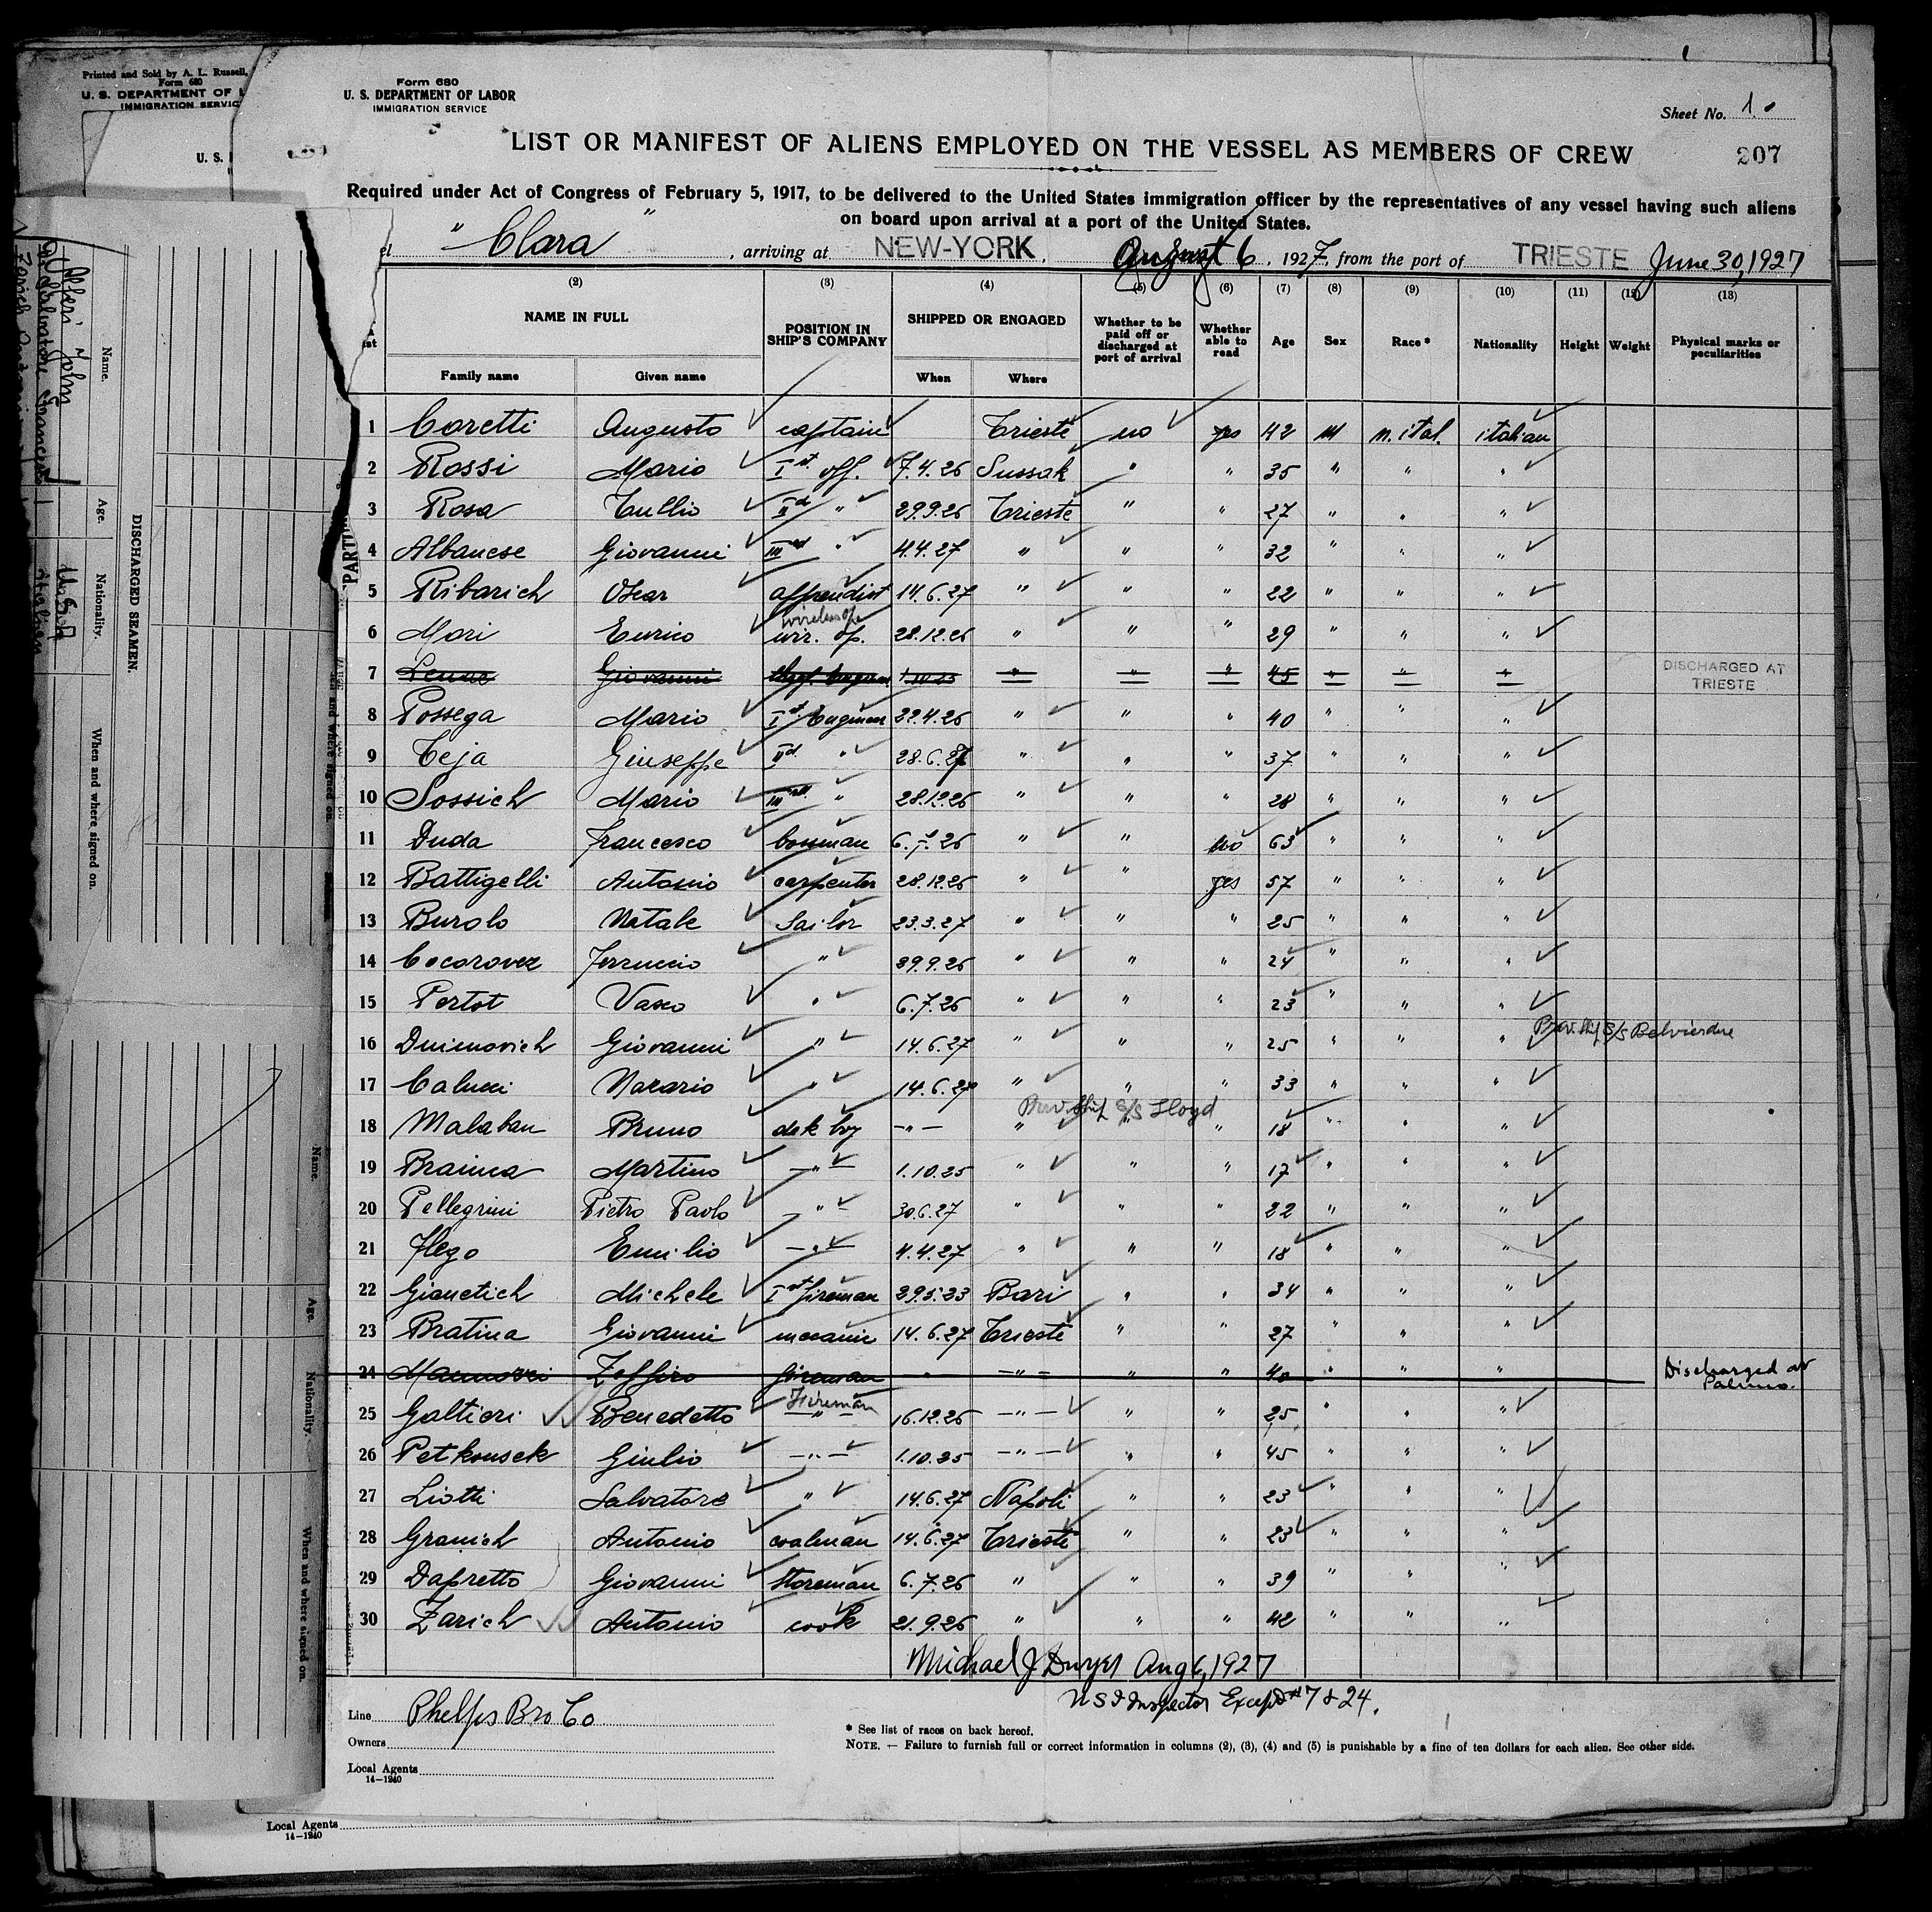 Printed and Sold by A. L. Russell,
Form 680
U. S. DEPARTMENT OF L
IMMIGRATION SERVIC
U. S.
Form 680
U. S. DEPARTMENT OF LABOR
IMMIGRATION SERVICE
Sheet No. 1.
LIST OR MANIFEST OF ALIENS EMPLOYED ON THE VESSEL AS MEMBERS OF CREW
207
Required under Act of Congress of February 5, 1917, to be delivered to the United States immigration officer by the representatives of any vessel having such aliens
on board upon arrival at a port of the United States.
el " Clara " , arriving at NEW-YORK , August 6 , 1927, from the port of TRIESTE June 30, 1927
(2) (3) (4) (5) (6) (7) (8) (9) (10) (11) (12) (13)
NAME IN FULL POSITION IN SHIP'S COMPANY SHIPPED OR ENGAGED Whether to be paid off or discharged at port of arrival Whether able to read Age Sex Race * Nationality Height Weight Physical marks or peculiarities
Family name Given name When Where
1 Coretti Augusto captain Trieste no yes 42 m n. ital. italian
2 Rossi Mario Ist off. 7.4.26 Sussak " " 35 " " "
3 Rosa Tullio IId " 29.9.26 Trieste " " 27 " " "
4 Albanese Giovanni IIIrd " 4.4.27 " " " 32 " " "
5 Ribarich Oscar 14.6.27 " " " 22 " " "
wireless op.
6 Mori Enrico wir. op. 28.12.26 " " " 29 " " "
7 Giovanni " " " 45 " " " DISCHARGED AT TRIESTE
8 Possega Mario Ist Engineer 22.4.26 " " " 40 " " "
9 Teja Giuseppe IId " 28.6.27 " " " 37 " " "
10 Sossich Mario IIIrd " 28.12.26 " " " 28 " " "
11 Duda Francesco 6.7.26 " " no 63 " " "
12 Battigelli Antonio carpenter 28.12.26 " " yes 57 " " "
13 Burolo Natale Sailor 23.3.27 " " " 25 " " "
14 Cocorovez Ferruccio " 29.9.26 " " " 24 " " "
15 Pertot Vasco " 6.7.26 " " " 23 " " "
Prev. Ship S/S Belvedere
16 Giovanni " 14.6.27 " " " 25 " " "
17 " 14.6.27 " " " 33 " " "
Prev. Ship S/S Lloyd
18 Malaban Bruno dek boy -"- " " " 18 " " "
19 Martino -"- 1.10.25 " " " 17 " " "
20 Pellegrini Pietro Paolo -"- 30.6.27 " " " 22 " " "
21 Flego Emilio -"- 4.4.27 " " " 18 " " "
22 Gianetich Michele Ist fireman 29.5.23 Bari " " 34 " " "
23 Bratina Giovanni 14.6.27 Trieste " " 27 " " "
24 Zeffiro fireman " -"- " " 40 " " " Discharged at
Palermo.
Fireman
25 Galtieri Benedetto -"- 16.12.26 -"- " " 25 " " "
26 Petkousek Giulio -"- 1.10.25 -"- " " 45 " " "
27 Liotti Salvatore " 14.6.27 Napoli " " 23 " " "
28 Granich Antonio coalman 14.6.27 Trieste " " 23 " " "
29 Dapretto Giovanni storeman 6.7.26 " " " 39 " " "
30 Zarich Antonio cook 21.9.26 " " " 42 " " "
Michael J. Dwyer Aug 6, 1927
U S I Inspector Except # 7 & 24.
Line Phelps Bro Co
Owners
Local Agents
14—1240
* See list of races on back hereof.
NOTE. — Failure to furnish full or correct information in columns (2), (3), (4) and (5) is punishable by a fine of ten dollars for each alien. See other side.
Local Agents
14—1240
DISCHARGED SEAMEN.
Name. Age. Nationality. When and where signed on.
John
Name. Age. Nationality. When and where signed on.